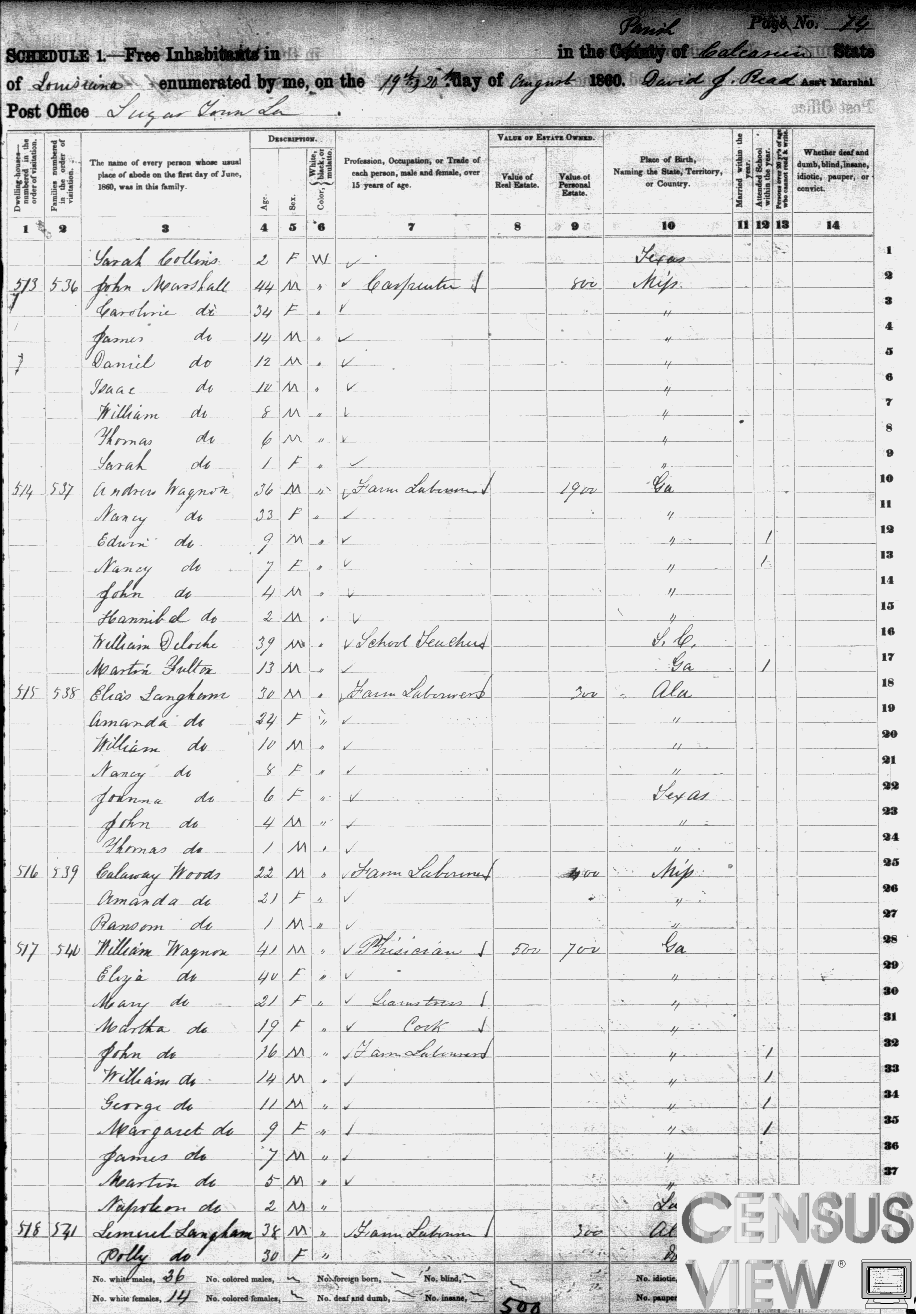 Page No. 74
SCHEDULE 1.—Free Inhabitants in in the County Parish of Calcasieu State
of Louisiana enumerated by me, on the 19th & 20th day of August 1860. David J. Read Ass't Marshal
Post Office Sugar Town La
Dwelling-houses—numbered in the order of visitation.
Families numbered in the order of visitation.
The name of every person whose usual place of abode on the first day of June, 1860, was in this family.
DESCRIPTION.
Age.
Sex.
Color, White, black, or mulatto.
Profession, Occupation, or Trade of each person, male and female, over 15 years of age.
VALUE OF ESTATE OWNED.
Value of Real Estate.
Value of Personal Estate.
Place of Birth, Naming the State, Territory, or Country.
Married within the year.
Attended School within the year.
Persons over 20 y'rs of age who cannot read & write.
Whether deaf and dumb, blind, insane, idiotic, pauper, or convict.
1 2 3 4 5 6 7 8 9 10 11 12 13 14
Sarah Collins 2 F W Texas 1
513 536 John Marshall 44 M " Carpenter 800 Mip. 2
Caroline do 34 F " " 3
James do 14 M " " 4
Daniel do 12 M " " 5
Isaac do 10 M " " 6
William do 8 M " " 7
Thomas do 6 M " " 8
Sarah do 1 F " " 9
514 537 Andrew Wagnon 36 M " Farm Labourer 1900 Ga 10
Nancy do 33 F " " 11
Edwin do 9 M " " 1 12
Nancy do 7 F " " 1 13
John do 4 M " " 14
Hannibal do 2 M " " 15
William Deloche 39 M " School Teacher S. C. 16
Martin Fulton 13 M " Ga 1 17
515 538 Elias Langham 30 M " Farm Labourer 300 Ala 18
Amanda do 24 F " " 19
William do 10 M " " 20
Nancy do 8 F " " 21
Joanna do 6 F " Texas 22
John do 4 M " " 23
Thomas do 1 M " " 24
516 539 Calaway Woods 22 M " Farm Labourer 400 Mip 25
Amanda do 21 F " " 26
Ransom do 1 M " " 27
517 540 William Wagnon 41 M " Phisician 500 700 Ga 28
Eliza do 40 F " " 29
Mary do 21 F " Seamstress " 30
Martha do 19 F " Cook " 31
John do 16 M " Farm Labourer " 1 32
William do 14 M " " 1 33
George do 11 M " " 1 34
Margaret do 9 F " " 1 35
James do 7 M " " 36
Martin do 5 M " " 37
Napoleon do 2 M " La
518 541 Lemuel Langham 38 M " Farm Labourer 300 Al
Polly do 30 F "
No. white males, 36 No. colored males, No. foreign born, No. blind, No. idiotic,
No. white females, 14 No. colored females, No. deaf and dumb, No. insane, 500 No. pauper
CENSUS
VIEW®